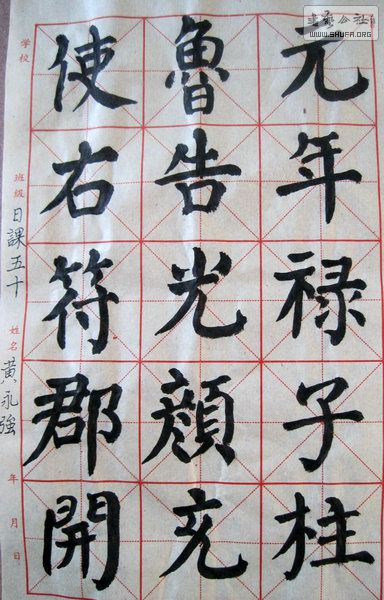 元年禄子柱
魯告光顔充
使右符郡開
学校
班級 日課五十
姓名 黄永強
年 月 日
書藝公社
WWW.SHUFA.ORG